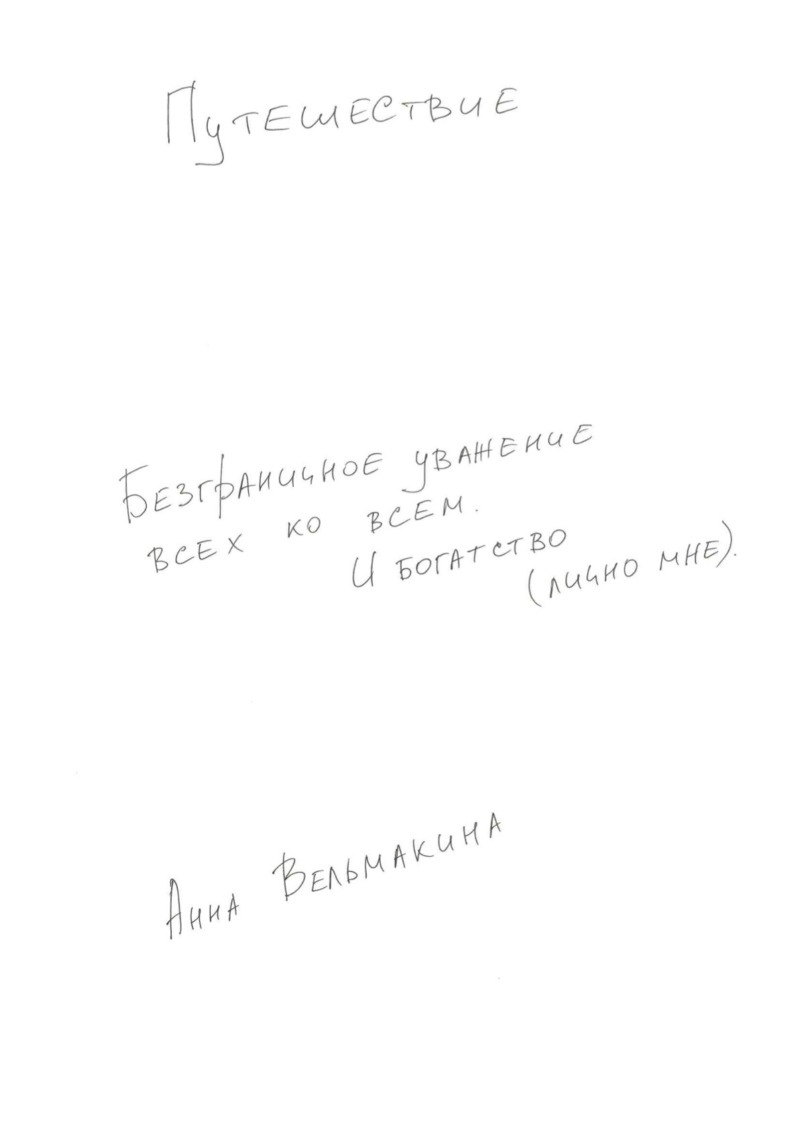 Путешествие
Безграничное уважение
всех ко всем.
И богатство
(лично мне).
Анна Вельмакина